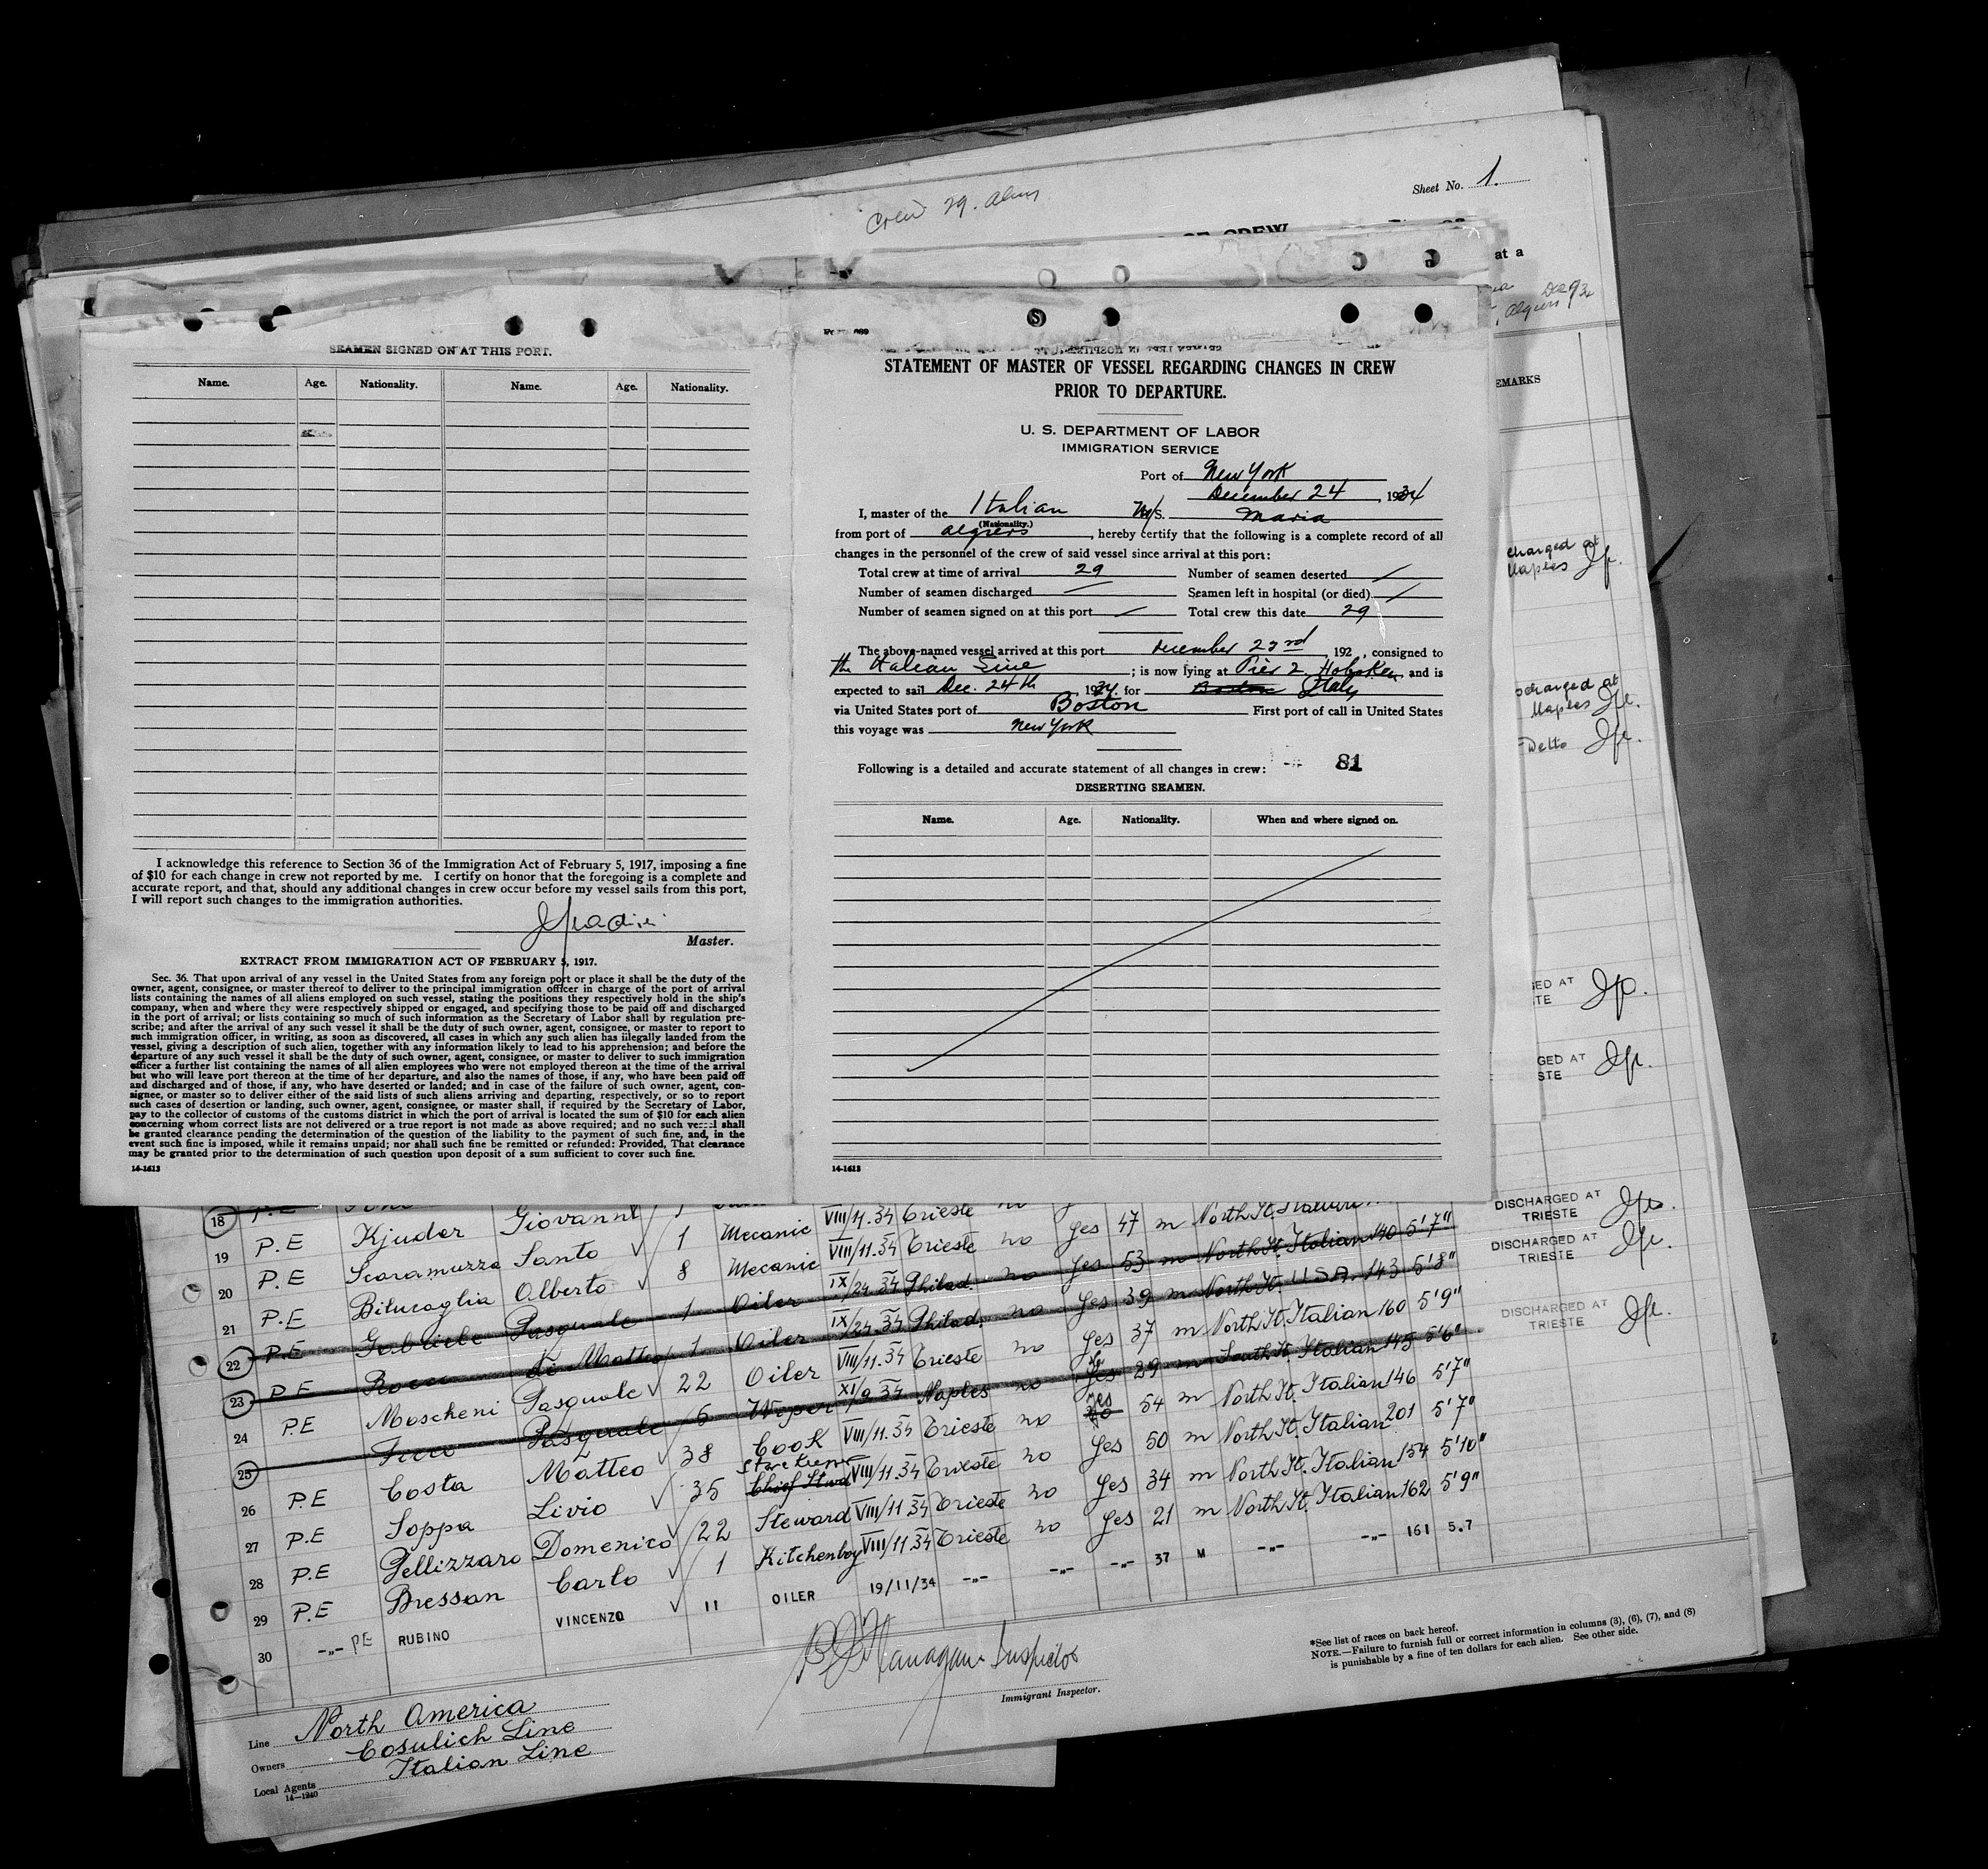 Crew 29. aliens
Sheet No. 1.
OF CREW
at a
Algiers Dec 9/34
EMARKS
SEAMEN SIGNED ON AT THIS PORT.
Name. Age. Nationality. Name. Age. Nationality.
I acknowledge this reference to Section 36 of the Immigration Act of February 5, 1917, imposing a fine
of $10 for each change in crew not reported by me. I certify on honor that the foregoing is a complete and
accurate report, and that, should any additional changes in crew occur before my vessel sails from this port,
I will report such changes to the immigration authorities.
Master.
EXTRACT FROM IMMIGRATION ACT OF FEBRUARY 5, 1917.
Sec. 36. That upon arrival of any vessel in the United States from any foreign port or place it shall be the duty of the
owner, agent, consignee, or master thereof to deliver to the principal immigration officer in charge of the port of arrival
lists containing the names of all aliens employed on such vessel, stating the positions they respectively hold in the ship's
company, when and where they were respectively shipped or engaged, and specifying those to be paid off and discharged
in the port of arrival; or lists containing so much of such information as the Secretary of Labor shall by regulation pre-
scribe; and after the arrival of any such vessel it shall be the duty of such owner, agent, consignee, or master to report to
such immigration officer, in writing, as soon as discovered, all cases in which any such alien has illegally landed from the
vessel, giving a description of such alien, together with any information likely to lead to his apprehension; and before the
departure of any such vessel it shall be the duty of such owner, agent, consignee, or master to deliver to such immigration
officer a further list containing the names of all alien employees who were not employed thereon at the time of the arrival
but who will leave port thereon at the time of her departure, and also the names of those, if any, who have been paid off
and discharged and of those, if any, who have deserted or landed; and in case of the failure of such owner, agent, con-
signee, or master so to deliver either of the said lists of such aliens arriving and departing, respectively, or so to report
such cases of desertion or landing, such owner, agent, consignee, or master shall, if required by the Secretary of Labor,
pay to the collector of customs of the customs district in which the port of arrival is located the sum of $10 for each alien
concerning whom correct lists are not delivered or a true report is not made as above required; and no such vessel shall
be granted clearance pending the determination of the question of the liability to the payment of such fine, and, in the
event such fine is imposed, while it remains unpaid; nor shall such fine be remitted or refunded: Provided, That clearance
may be granted prior to the determination of such question upon deposit of a sum sufficient to cover such fine.
14-1613
Form 689
STATEMENT OF MASTER OF VESSEL REGARDING CHANGES IN CREW
PRIOR TO DEPARTURE.
U. S. DEPARTMENT OF LABOR
IMMIGRATION SERVICE
Port of New York
December 24, 1934
I, master of the Italian M/S. Maria
(Nationality.)
from port of Algiers, hereby certify that the following is a complete record of all
changes in the personnel of the crew of said vessel since arrival at this port:
Total crew at time of arrival 29 Number of seamen deserted /
Number of seamen discharged / Seamen left in hospital (or died) /
Number of seamen signed on at this port / Total crew this date 29
The above-named vessel arrived at this port December 23rd, 192 , consigned to
the Italian Line; is now lying at Pier 2 Hoboken, and is
expected to sail Dec. 24th, 1934 for Boston Italy
via United States port of Boston First port of call in United States
this voyage was New York
Following is a detailed and accurate statement of all changes in crew: 81
DESERTING SEAMEN.
Name. Age. Nationality. When and where signed on.
14-1613
charged at
Naples
scharged at
Naples
GED AT
STE
18 P.E
19 P.E Kjuder Giovanni 1 Mecanic VIII/11.34 Trieste no yes 47 m North It. Italian
20 P.E Scaramuzza Santo 1 Mecanic VIII/11.34 Trieste no yes 53 m North It. Italian 140 5'7" DISCHARGED AT TRIESTE
21 P.E Bilucaglia Alberto 8 Oiler IX/24.34 Philad. no yes 39 m North It. U.S.A. 143 5'8" DISCHARGED AT TRIESTE
22 P.E Gabriele Pasquale 1 Oiler IX/24.34 Philad. no yes 37 m North It. Italian 160 5'9"
23 P.E Rocco di Matteo 1 Oiler VIII/11.34 Trieste no yes 29 m South It. Italian 145 5'6" DISCHARGED AT TRIESTE
24 P.E Moscheni Pasquale 22 Wiper XI/9 34 Naples no yes 54 m North It. Italian 146 5'7"
25 Pasquale 6 Cook VIII/11.34 Trieste no yes 50 m North It. Italian 201 5'7"
26 P.E Costa Matteo 38 Store Keeper Chief Stwd VIII/11.34 Trieste no yes 34 m North It. Italian 154 5'10"
27 P.E Soppa Livio 35 Steward VIII/11 34 Trieste no yes 21 m North It. Italian 162 5'9"
28 P.E Pellizzaro Domenico 22 Kitchenboy VIII/11 34 Trieste
29 P.E Bressan Carlo 1
30 -"- PE RUBINO VINCENZO 11 OILER 19/11/34 -"- -"- -"- 37 M -"- -"- 161 5.7
Inspector
Immigrant Inspector.
*See list of races on back hereof.
NOTE.—Failure to furnish full or correct information in columns (3), (6), (7), and (8)
is punishable by a fine of ten dollars for each alien. See other side.
Line North America
Owners Cosulich Line
Local Agents Italian Line
14—1240